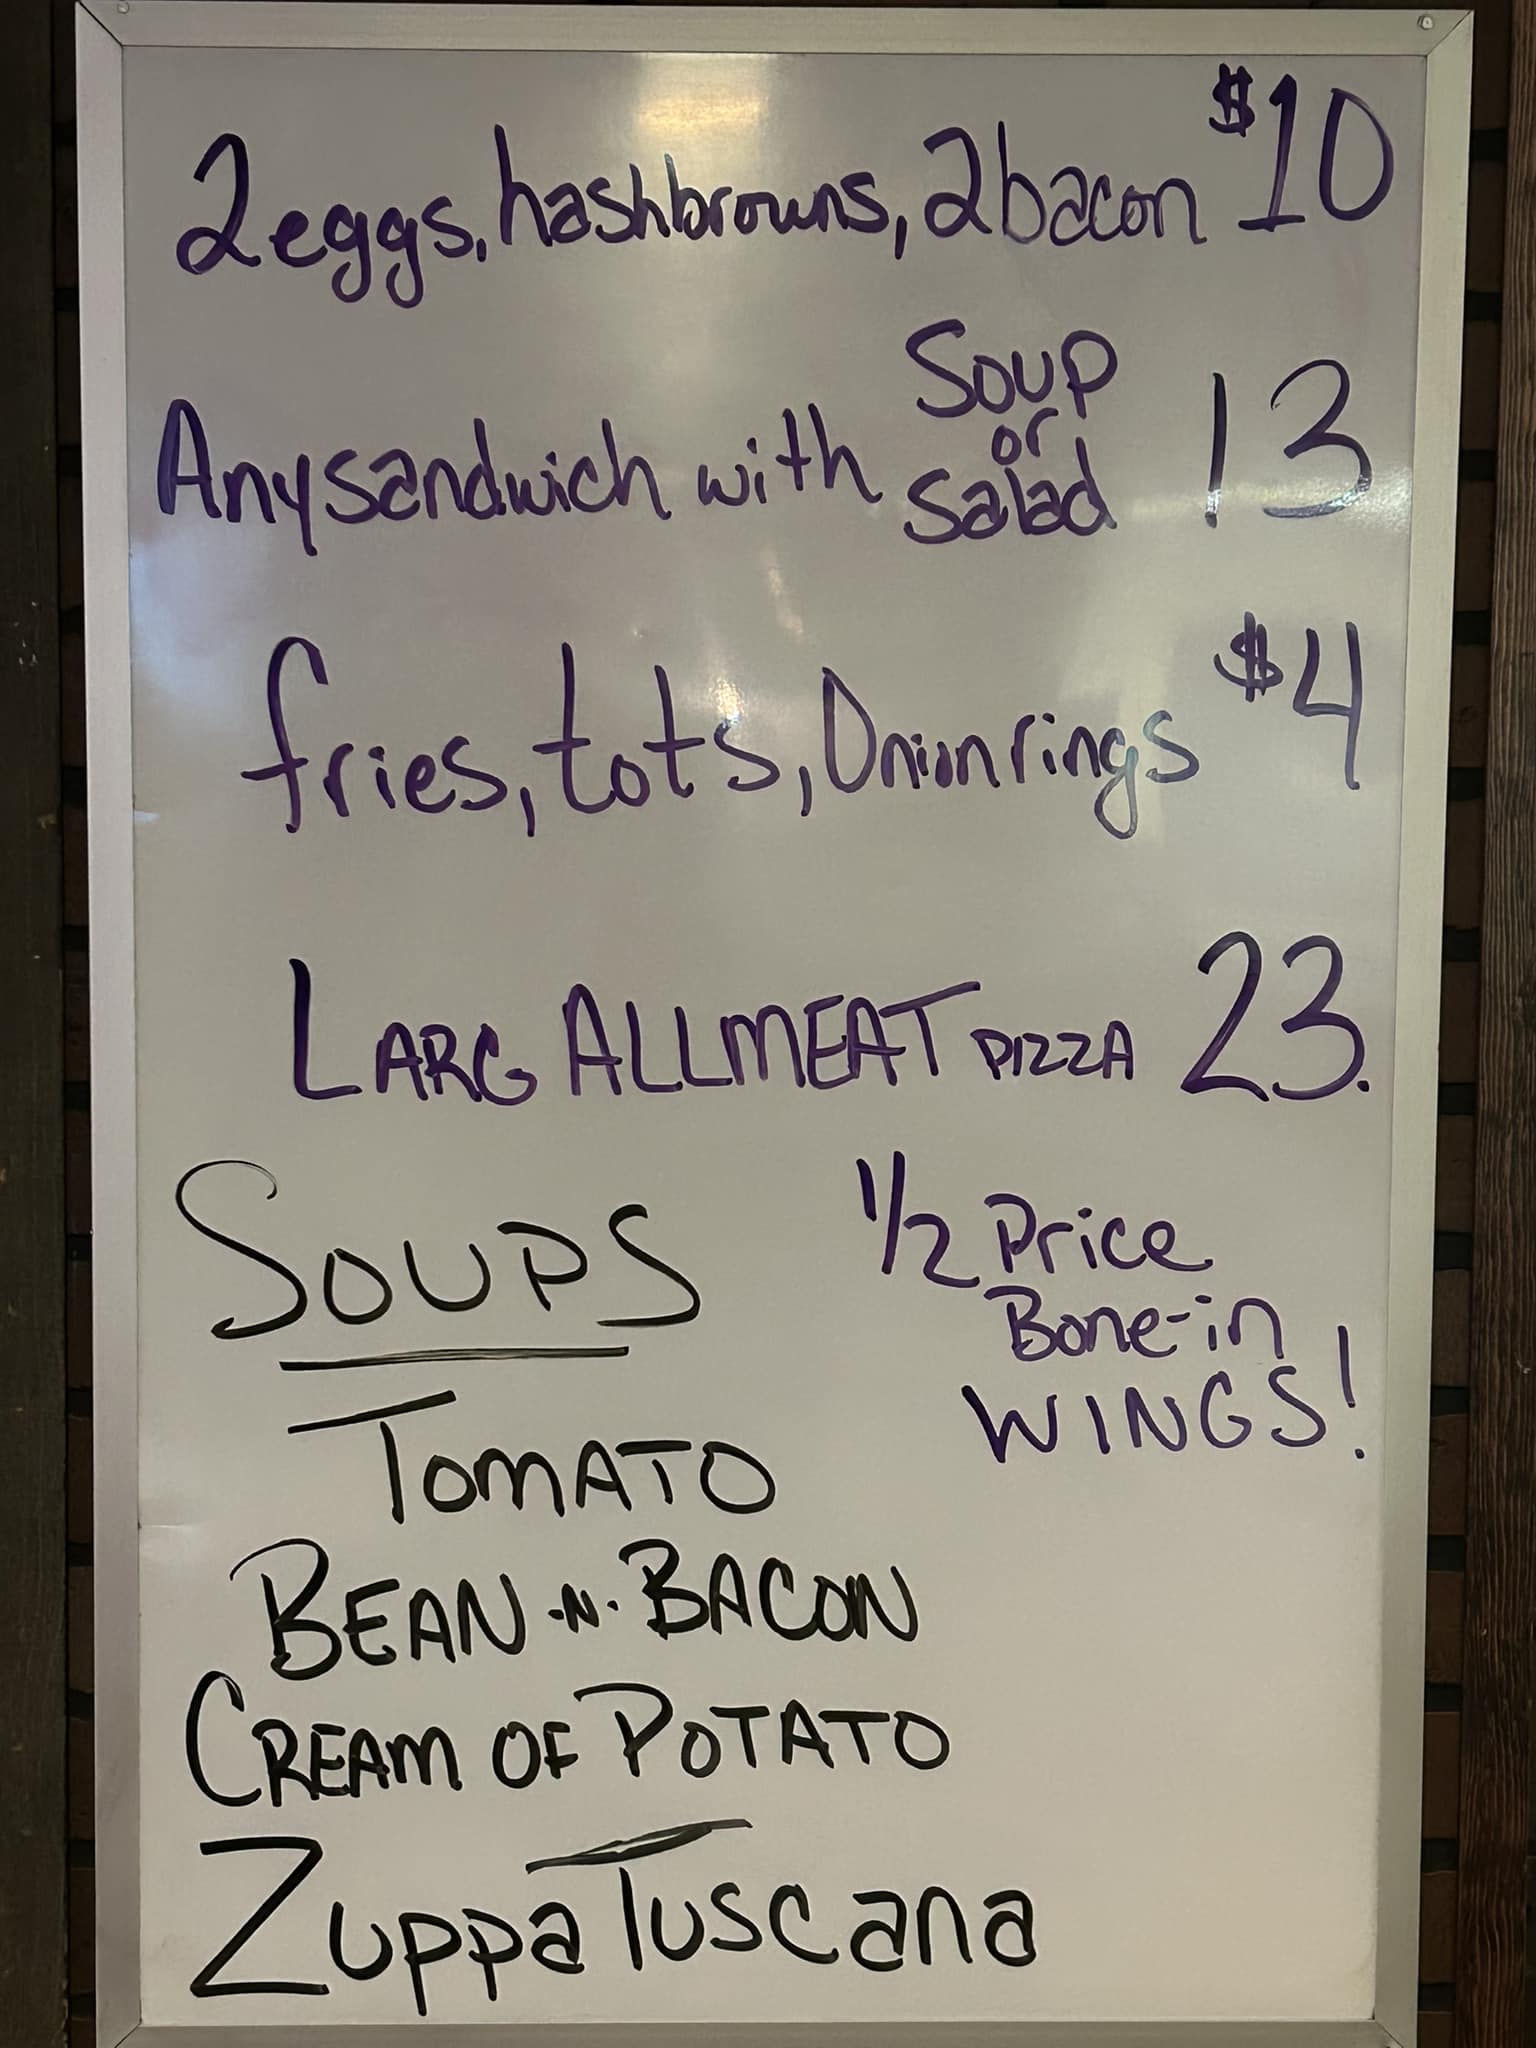 2 eggs, hashbrowns, 2 bacon $10
Any sandwich with Soup or Salad 13
fries, tots, Onion rings $4
LARG ALLMEAT PIZZA 23.
SOUPS
TOMATO
BEAN -N- BACON
CREAM OF POTATO
Zuppa Tuscana
1/2 Price
Bone-in
WINGS!